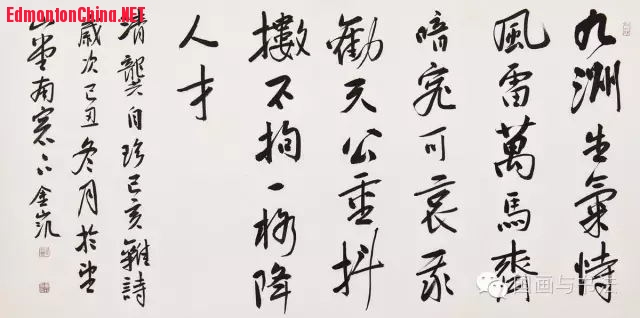 EdmontonChina.NET
九洲生氣恃
風雷萬馬齊
喑究可哀我
勸天公重抖
擻不拘一格降
人才
清龔自珍己亥雜詩
歲次己丑冬月於望
山堂南窓下金
国画与书法